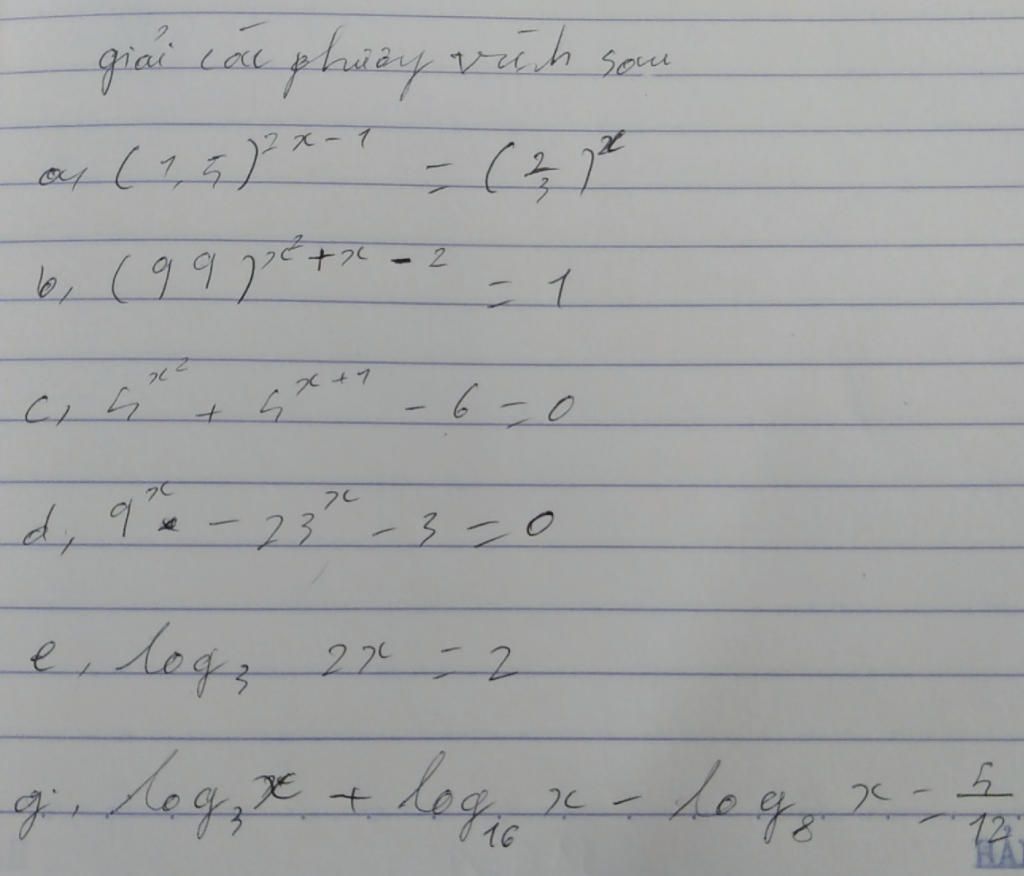 giải các phương trình sau
a, (1,5)^{2x-1} = (2/3)^x
b, (99)^{x²+x-2} = 1
c, 5^{x²} + 5^{x+1} - 6 = 0
d, 9^x - 23^x - 3 = 0
e, log₃ 2x = 2
g, log₃x + log₁₆ x - log₈ x = 5/12
HẢI